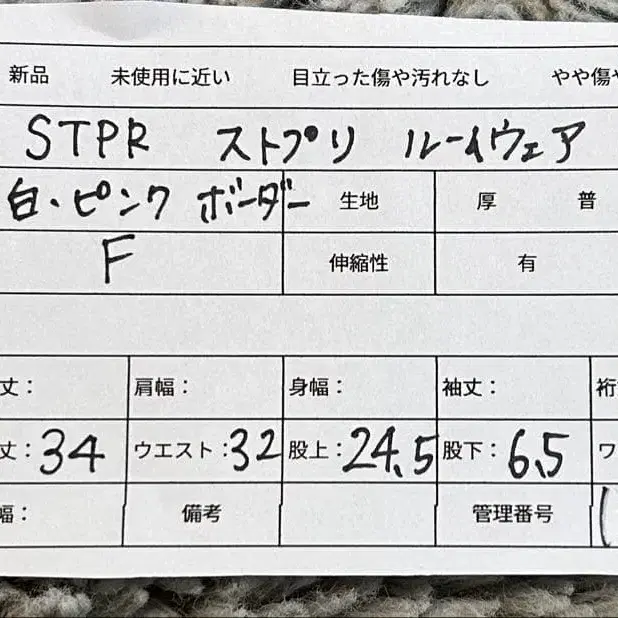 新品 未使用に近い 目立った傷や汚れなし やや傷や
STPR ストプリ ルームウェア
白・ピンク ボーダー 生地 厚 普
F 伸縮性 有
丈： 肩幅： 身幅： 袖丈： 裄
丈：34 ウエスト：32 股上：24.5 股下：6.5 ワ
幅： 備考 管理番号